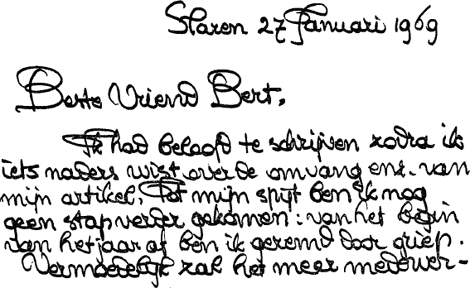 Slaren 27 Januari 1969
Beste Vriend Bert,
Ik had beloofd te schrijven zodra ik
iets naders wist over de omvang enz. van
mijn artikel. Tot mijn spijt ben ik nog
geen stap verder gekomen: van het begin
van het jaar af ben ik geremd door griep.
Vermoedelijk zal het meer medewer-